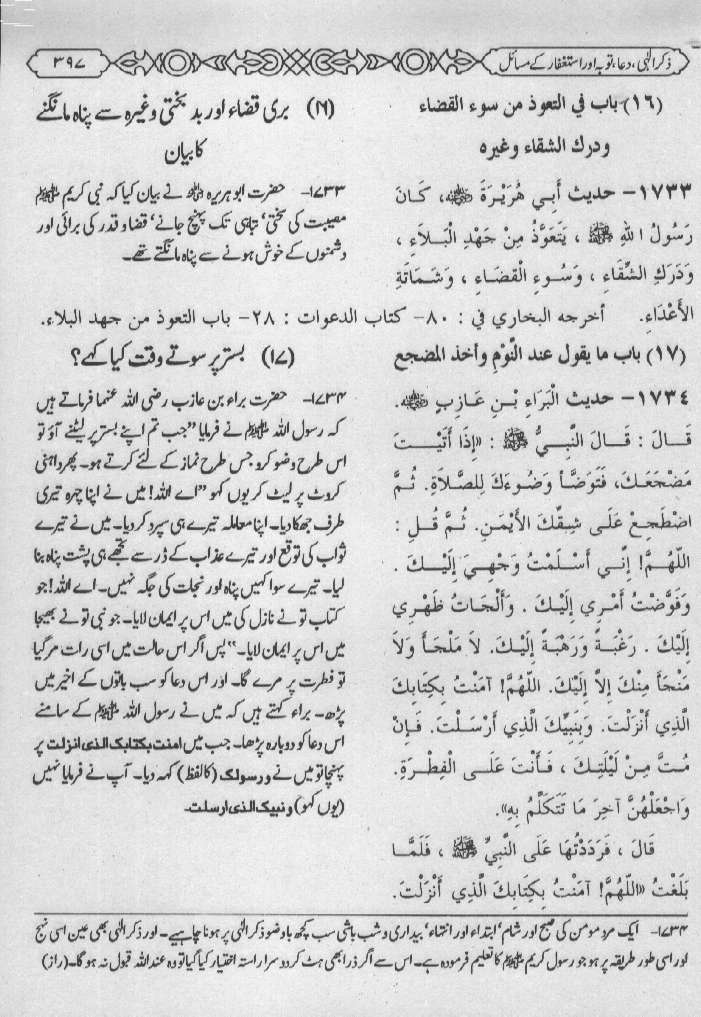 ذکر الٰہی، دعا، توبہ اور استغفار کے مسائل
۳۹۷
(١٦) باب في التعوذ من سوء القضاء
ودرك الشقاء وغيره
١٧٣٣- حديث أَبِي هُرَيْرَةَ ﷺ، كَانَ
رَسُولُ اللهِ ﷺ، يَتَعَوَّذُ مِنْ جَهْدِ الْبَلَاءِ،
وَدَرَكِ الشَّقَاءِ، وَسُوءِ الْقَضَاءِ، وَشَمَاتَةِ
الأَعْدَاءِ. أخرجه البخاري في : ٨٠- كتاب الدعوات : ٢٨- باب التعوذ من جهد البلاء.
(١٦) بری قضاء اور بد بختی وغیرہ سے پناہ مانگنے
کا بیان
۱۷۳۳- حضرت ابو ہریرہ نے بیان کیا کہ نبی کریم ﷺ
مصیبت کی سختی‘ تباہی تک پہنچ جانے‘ قضا و قدر کی برائی اور
دشمنوں کے خوش ہونے سے پناہ مانگتے تھے۔
(١٧) باب ما يقول عند النَّوْمِ وأخذ المضجع
١٧٣٤- حديث الْبَرَاءِ بْنِ عَازِبٍ.
قَالَ : قَالَ النَّبِيُّ ﷺ : «إِذَا أَتَيْتَ
مَضْجَعَكَ، فَتَوَضَّأْ وَضُوءَكَ لِلصَّلَاةِ. ثُمَّ
اضْطَجِعْ عَلَى شِقِّكَ الأَيْمَنِ. ثُمَّ قُلِ :
اللّٰهُمَّ! إِنِّي أَسْلَمْتُ وَجْهِيَ إِلَيْكَ.
وَفَوَّضْتُ أَمْرِي إِلَيْكَ. وَأَلْجَأْتُ ظَهْرِي
إِلَيْكَ. رَغْبَةً وَرَهْبَةً إِلَيْكَ. لاَ مَلْجَأَ وَلاَ
مَنْجَأَ مِنْكَ إِلاَّ إِلَيْكَ. اللّٰهُمَّ! آمَنْتُ بِكِتَابِكَ
الَّذِي أَنْزَلْتَ. وَبِنَبِيِّكَ الَّذِي أَرْسَلْتَ. فَإِنْ
مُتَّ مِنْ لَيْلَتِكَ، فَأَنْتَ عَلَى الْفِطْرَةِ.
وَاجْعَلْهُنَّ آخِرَ مَا تَتَكَلَّمُ بِهِ».
قَالَ، فَرَدَدْتُهَا عَلَى النَّبِيِّ ﷺ، فَلَمَّا
بَلَغْتُ «اللّٰهُمَّ! آمَنْتُ بِكِتَابِكَ الَّذِي أَنْزَلْتَ.
(۱۷) بستر پر سوتے وقت کیا کہے؟
۱۷۳۴- حضرت براء بن عازب رضی اللہ عنہما فرماتے ہیں
کہ رسول اللہ ﷺ نے فرمایا ”جب تم اپنے بستر پر لیٹنے آؤ تو
اس طرح وضو کرو جس طرح نماز کے لئے کرتے ہو۔ پھر داہنی
کروٹ پر لیٹ کر یوں کہو ”اے اللہ! میں نے اپنا چہرہ تیری
طرف جھکا دیا۔ اپنا معاملہ تیرے ہی سپرد کر دیا۔ میں نے تیرے
ثواب کی توقع اور تیرے عذاب کے ڈر سے تجھے ہی پشت پناہ بنا
لیا۔ تیرے سوا کہیں پناہ اور نجات کی جگہ نہیں۔ اے اللہ! جو
کتاب تو نے نازل کی میں اس پر ایمان لایا۔ جو نبی تو نے بھیجا
میں اس پر ایمان لایا۔“ پس اگر اس حالت میں اسی رات مر گیا
تو فطرت پر مرے گا۔ اور اس دعا کو سب باتوں کے اخیر میں
پڑھ۔ براء کہتے ہیں کہ میں نے رسول اللہ ﷺ کے سامنے
اس دعا کو دوبارہ پڑھا۔ جب میں امنت بکتابک الذی انزلت پر
پہنچا تو میں نے و رسولک (کا لفظ) کہہ دیا۔ آپ نے فرمایا نہیں
(یوں کہو) و نبیک الذی ارسلت۔
۱۷۳۴- ایک مرد مومن کی صبح اور شام‘ ابتداء اور انتہاء‘ بیداری و شب باشی سب کچھ باوضو ذکر الٰہی پر ہونا چاہیے۔ اور ذکر الٰہی بھی عین اسی نہج
اور اسی طور طریقہ پر ہو جو رسول کریم ﷺ کا تعلیم فرمودہ ہے۔ اس سے اگر ذرا بھی ہٹ کر دوسرا راستہ اختیار کیا گیا تو وہ عند اللہ قبول نہ ہو گا۔ (راز)